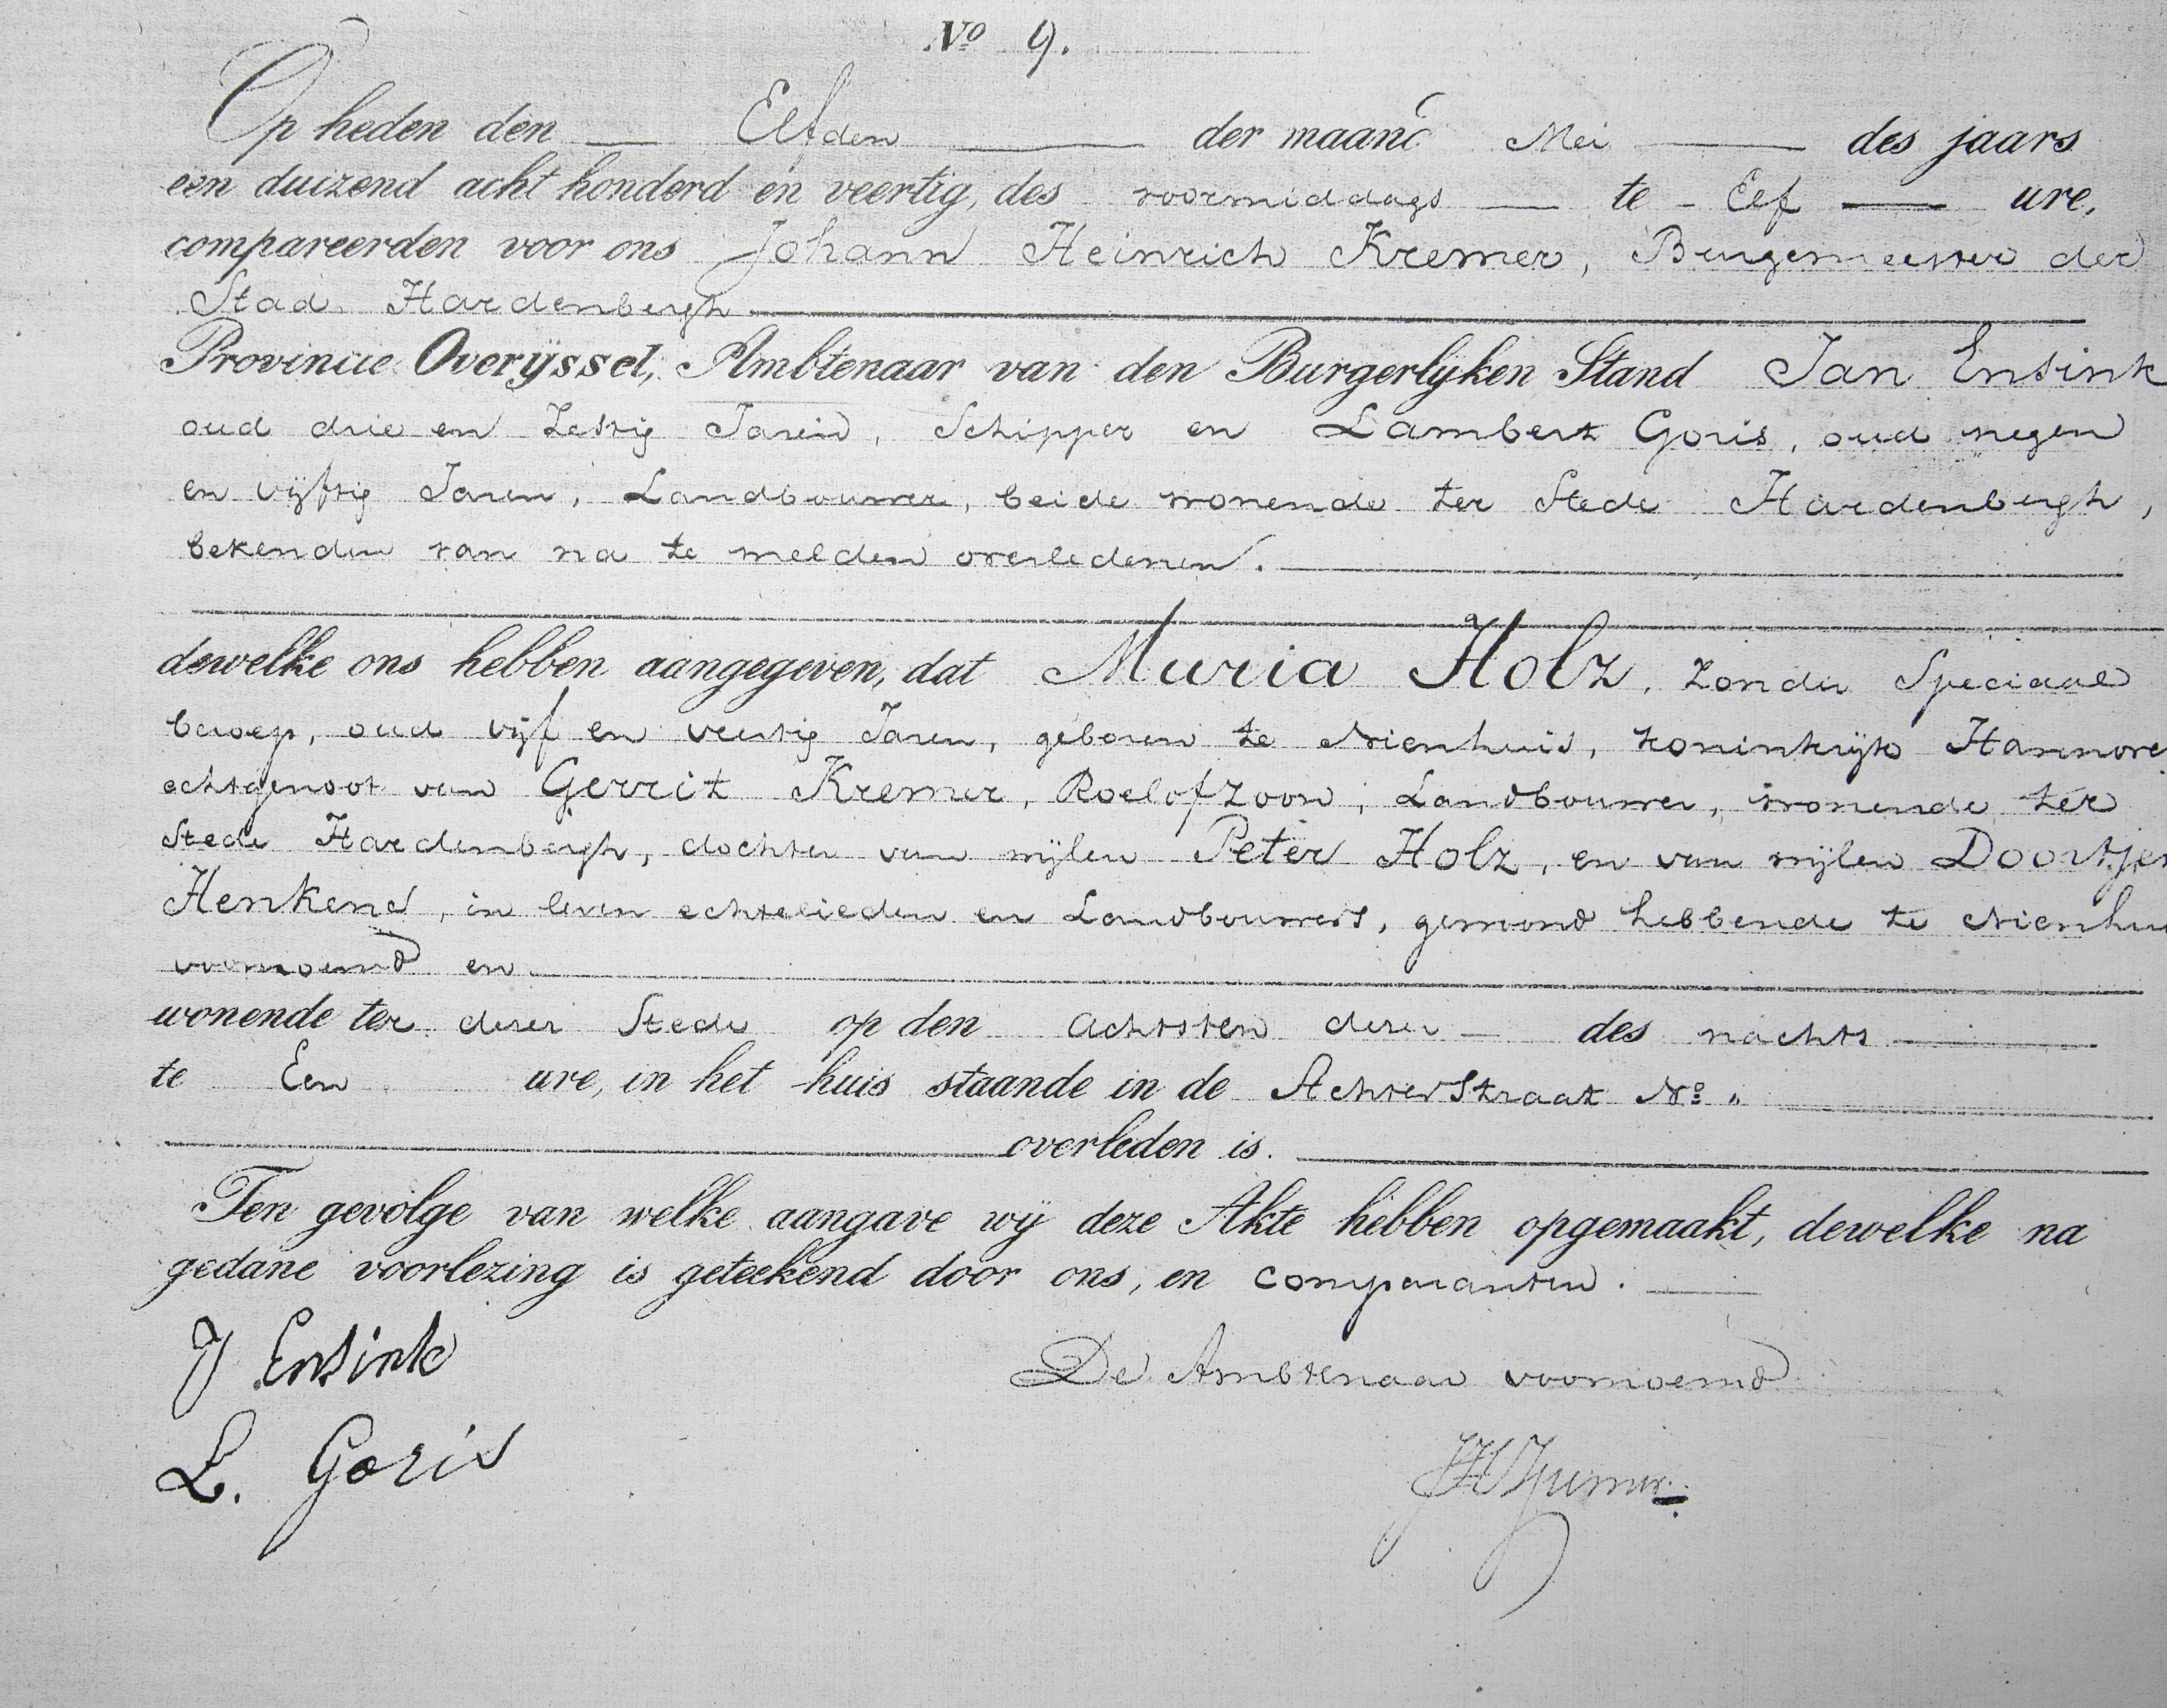 No 9.
Op heden den Elfden der maand Mei des jaars
een duizend acht honderd en veertig, des voormiddags te Elf ure,
compareerden voor ons Johann Heinrich Kremer, Burgemeester der
Stad Hardenbergh
Provincie Overÿssel, Ambtenaar van den Burgerlÿken Stand Jan Ensink
oud drie en Zestig Jaren, Schipper en Lambert Goris, oud negen
en vijftig Jaren, Landbouwer, beide wonende ter Stede Hardenbergh,
bekenden van na te melden overledenen.
dewelke ons hebben aangegeven, dat Maria Holz, zonder Speciaal
beroep, oud vijf en veertig Jaren, geboren te Nienhuis, koninkrijk Hannover
echtgenoot van Gerrit Kremer, Roelofzoon, Landbouwer, wonende ter
Stede Hardenbergh, dochter van wijlen Peter Holz, en van wijlen Doortjen
Henkend, in leven echtelieden en Landbouwers, gewoond hebbende te Nienhui
voornoemd en
wonende ter dezer Stede op den achtsten dezer des nachts
te Een ure, in het huis staande in de Achterstraat No "
overleden is.
Ten gevolge van welke aangave wÿ deze Akte hebben opgemaakt, dewelke na
gedane voorlezing is geteekend door ons, en comparanten.
J Ensink
De Ambtenaar voornoemd
L. Goris
JHKremer.